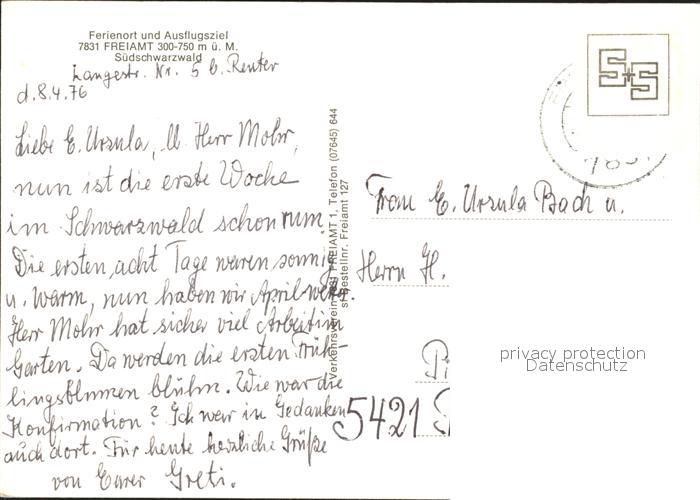 Ferienort und Ausflugsziel
7831 FREIAMT 300-750 m ü. M.
Südschwarzwald
Langestr. Nr. 5 b. Reuter
d. 8.4.76
Liebe E. Ursula, u. Herr Mohr,
nun ist die erste Woche
im Schwarzwald schon rum.
Die ersten acht Tage waren sonnig
u. warm, nun haben wir Aprilwetter.
Herr Mohr hat sicher viel Arbeit im
Garten. Da werden die ersten Früh-
lingsblumen blühn. Wie war die
Konfirmation? Ich war in Gedanken
auch dort. Für heute herzliche Grüße
von Eurer Greti.
Verkehrsverein 7831 FREIAMT 1, Telefon (07645) 644
Bestellnr. Freiamt 127
S+S
783
Frau E. Ursula Bach u.
Herrn H.
5421
privacy protection
Datenschutz